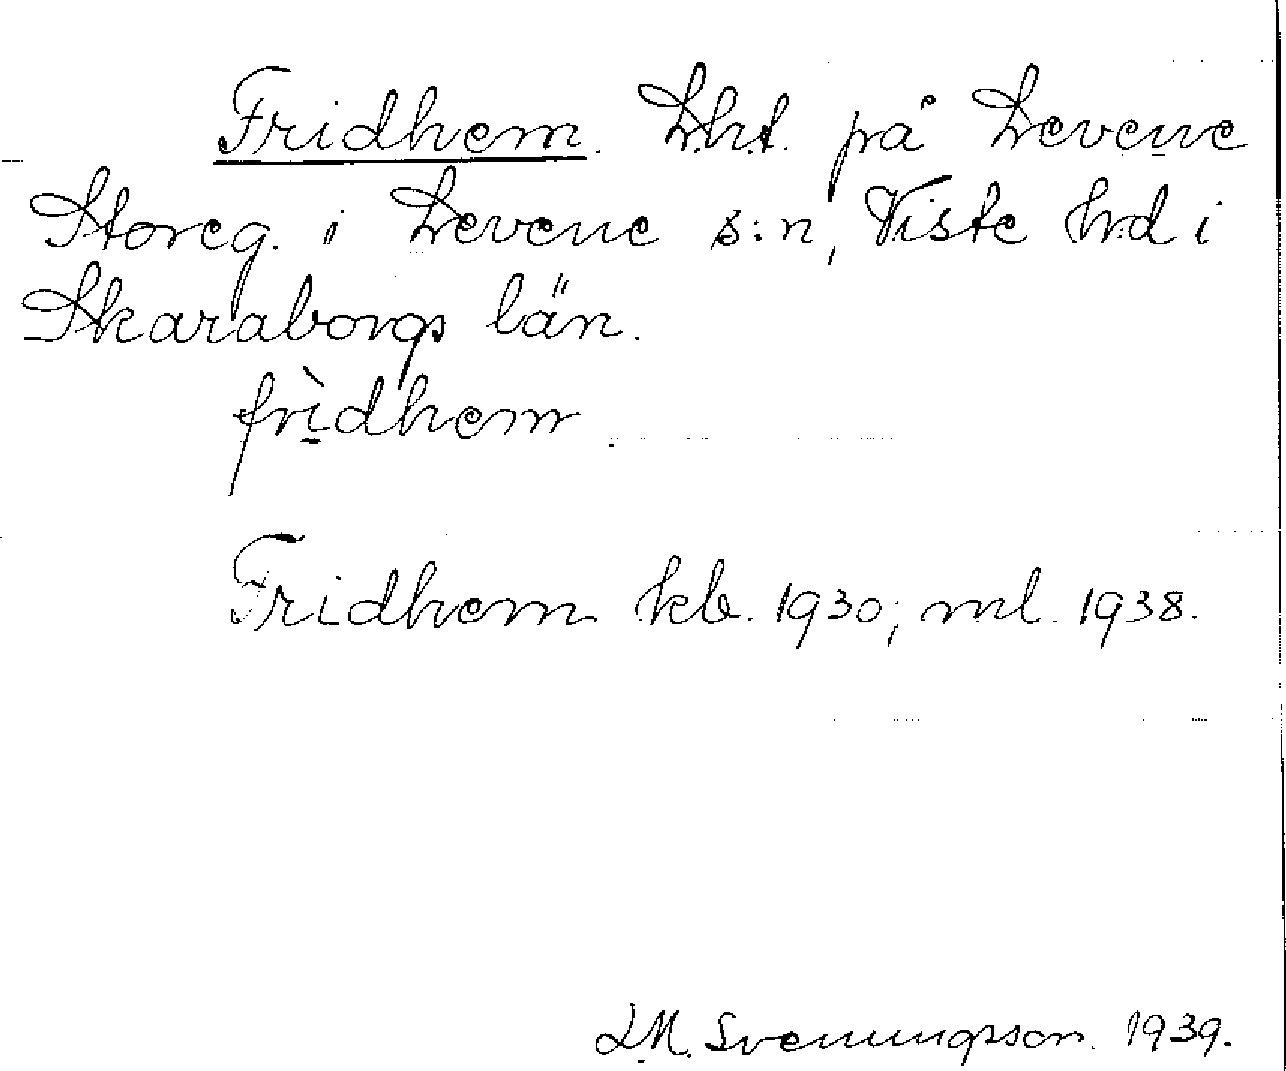 Fridhem. Lht. på Levene
Storeg. i Levene s:n, Viste hd i
Skaraborgs län.
frìdhem
Fridhem kb. 1930; ml. 1938.
L.M. Svenungsson. 1939.